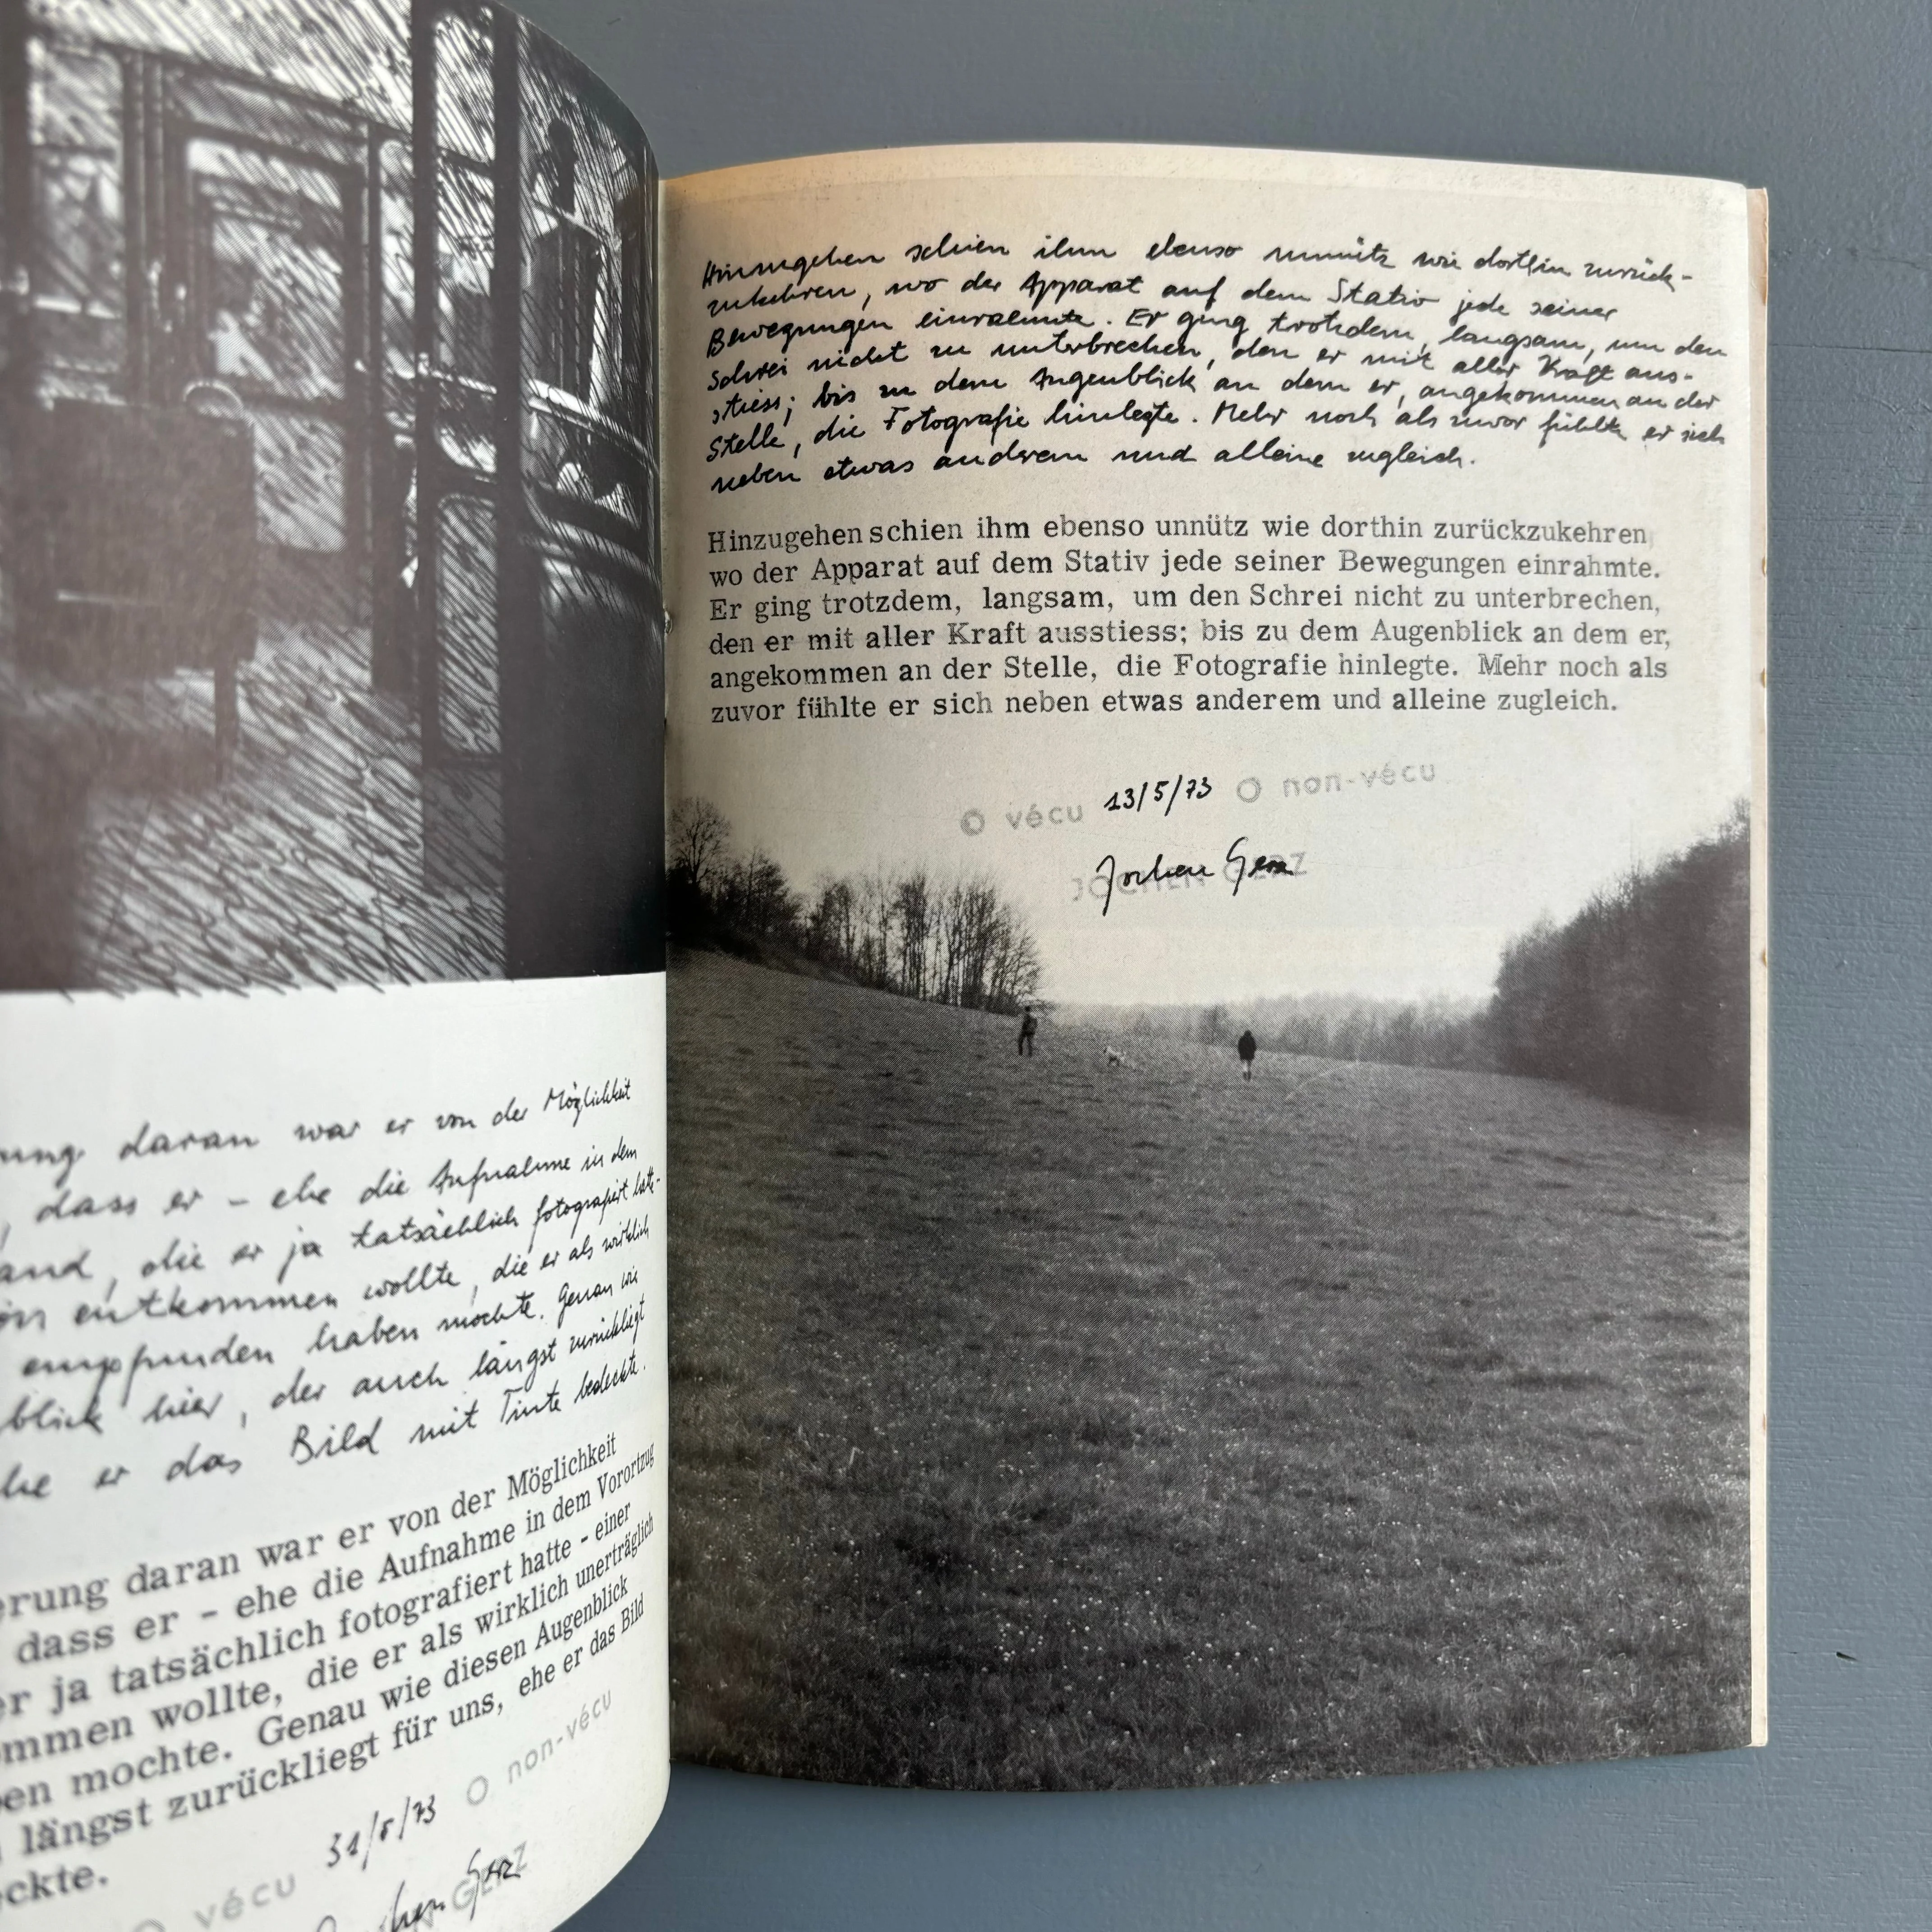 nung daran war er von der Möglichkeit
, dass er – ehe die Aufnahme in dem
and, die er ja tatsächlich fotografiert hatte-
entkommen wollte, die er als wirklich
empfunden haben mochte. Genau wie
blick hier, der auch längst zurückliegt
he er das Bild mit Tinte bedeckte.
erung daran war er von der Möglichkeit
dass er - ehe die Aufnahme in dem Vorortzug
er ja tatsächlich fotografiert hatte - einer
ommen wollte, die er als wirklich unerträglich
en mochte. Genau wie diesen Augenblick
längst zurückliegt für uns, ehe er das Bild
ckte.
O vécu 31/5/73 O non-vécu
Jochen Gerz
GERZ
Hinzugehen schien ihm ebenso unnütz wie dorthin zurück-
zukehren, wo der Apparat auf dem Stativ jede seiner
Bewegungen einrahmte. Er ging trotzdem, langsam, um den
Schrei nicht zu unterbrechen, den er mit aller Kraft aus-
stiess; bis zu dem Augenblick an dem er, angekommen an der
Stelle, die Fotografie hinlegte. Mehr noch als zuvor fühlte er sich
neben etwas anderem und alleine zugleich.
Hinzugehen schien ihm ebenso unnütz wie dorthin zurückzukehren,
wo der Apparat auf dem Stativ jede seiner Bewegungen einrahmte.
Er ging trotzdem, langsam, um den Schrei nicht zu unterbrechen,
den er mit aller Kraft ausstiess; bis zu dem Augenblick an dem er,
angekommen an der Stelle, die Fotografie hinlegte. Mehr noch als
zuvor fühlte er sich neben etwas anderem und alleine zugleich.
O vécu 13/5/73 O non-vécu
Jochen Gerz
JOCHEN GERZ